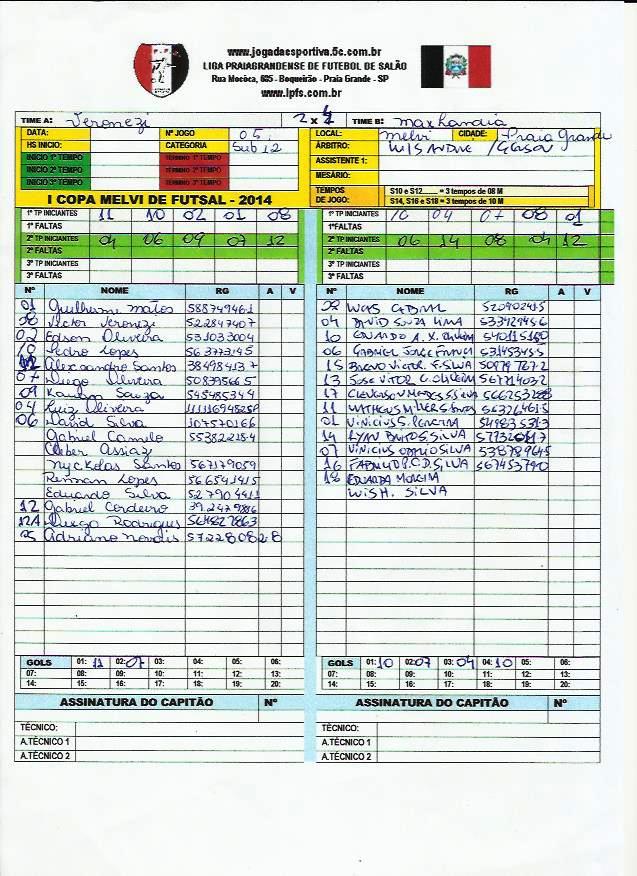 www.jogadaesportiva.5c.com.br
LIGA PRAIAGRANDENSE DE FUTEBOL DE SALÃO
Rua Mococa, 685 - Boqueirão - Praia Grande - SP
www.lpfs.com.br
TIME A: Veronezi 2 x 4 TIME B: Maxlandia
DATA: Nº JOGO 05 LOCAL: Melvi CIDADE: Praia Grande
HS INICIO: CATEGORIA Sub 12 ÁRBITRO: LUIS ANDRE / GERSON
INICIO 1º TEMPO TÉRMINO 1º TEMPO ASSISTENTE 1:
INICIO 2º TEMPO TÉRMINO 2º TEMPO MESÁRIO:
INICIO 3º TEMPO TÉRMINO 3º TEMPO TEMPOS DE JOGO: S10 e S12...... = 3 tempos de 08 M
I COPA MELVI DE FUTSAL - 2014 S14, S16 e S18 = 3 tempos de 10 M
1º TP INICIANTES 11 10 02 01 08 1º TP INICIANTES 10 04 07 08 01
1º FALTAS 1ºFALTAS
2º TP INICIANTES 04 06 09 07 12 2º TP INICIANTES 06 14 08 04 12
2º FALTAS 2º FALTAS
3º TP INICIANTES 3º TP INICIANTES
3º FALTAS 3º FALTAS
Nº NOME RG A V Nº NOME RG A V
01 Guilherme Matos 588749461
08 Victor Veronezi 522847407 LUIS CABRAL 520902415
02 Edson Oliveira 531033004 04 DAVID SOUZA LIMA
10 Pedro Lopes 10
Alexsandro Santos 384984137 06 GABRIEL
07 Diego Oliveira 508395665 15 BRUNO VITOR F. SILVA
09 Kauan Souza 545485349 13 JOSE VITOR C. OLIVEIRA 567714032
04 Luiz Oliveira 17
06 David Silva 107570166 11 MATHEUS
Gabriel Camilo 553822184 01 VINICIUS S. PEREIRA 549835313
Cleber Assiaz 14 LYAN SILVA
Nyckolas Santos 567179059 07 VINICIUS SILVA 538789645
Rennan Lopes 566541415 16 SILVA 567453790
Eduardo Silva 527904411 18 EDUARDA MOREIRA
12 Gabriel Cordeiro LUIS H. SILVA
12A Diego Rodrigues 564827863
25 Adriano Novais 572280828
GOLS 01: 11 02: 07 03: 04: 05: 06: GOLS 01: 10 02: 07 03: 04 04: 10 05: 06:
07: 08: 09: 10: 11: 12: 13: 07: 08: 09: 10: 11: 12: 13:
14: 15: 16: 17: 18: 19: 20: 14: 15: 16: 17: 18: 19: 20:
ASSINATURA DO CAPITÃO Nº ASSINATURA DO CAPITÃO Nº
TÉCNICO: TÉCNICO:
A.TÉCNICO 1 A.TÉCNICO 1
A.TÉCNICO 2 A.TÉCNICO 2